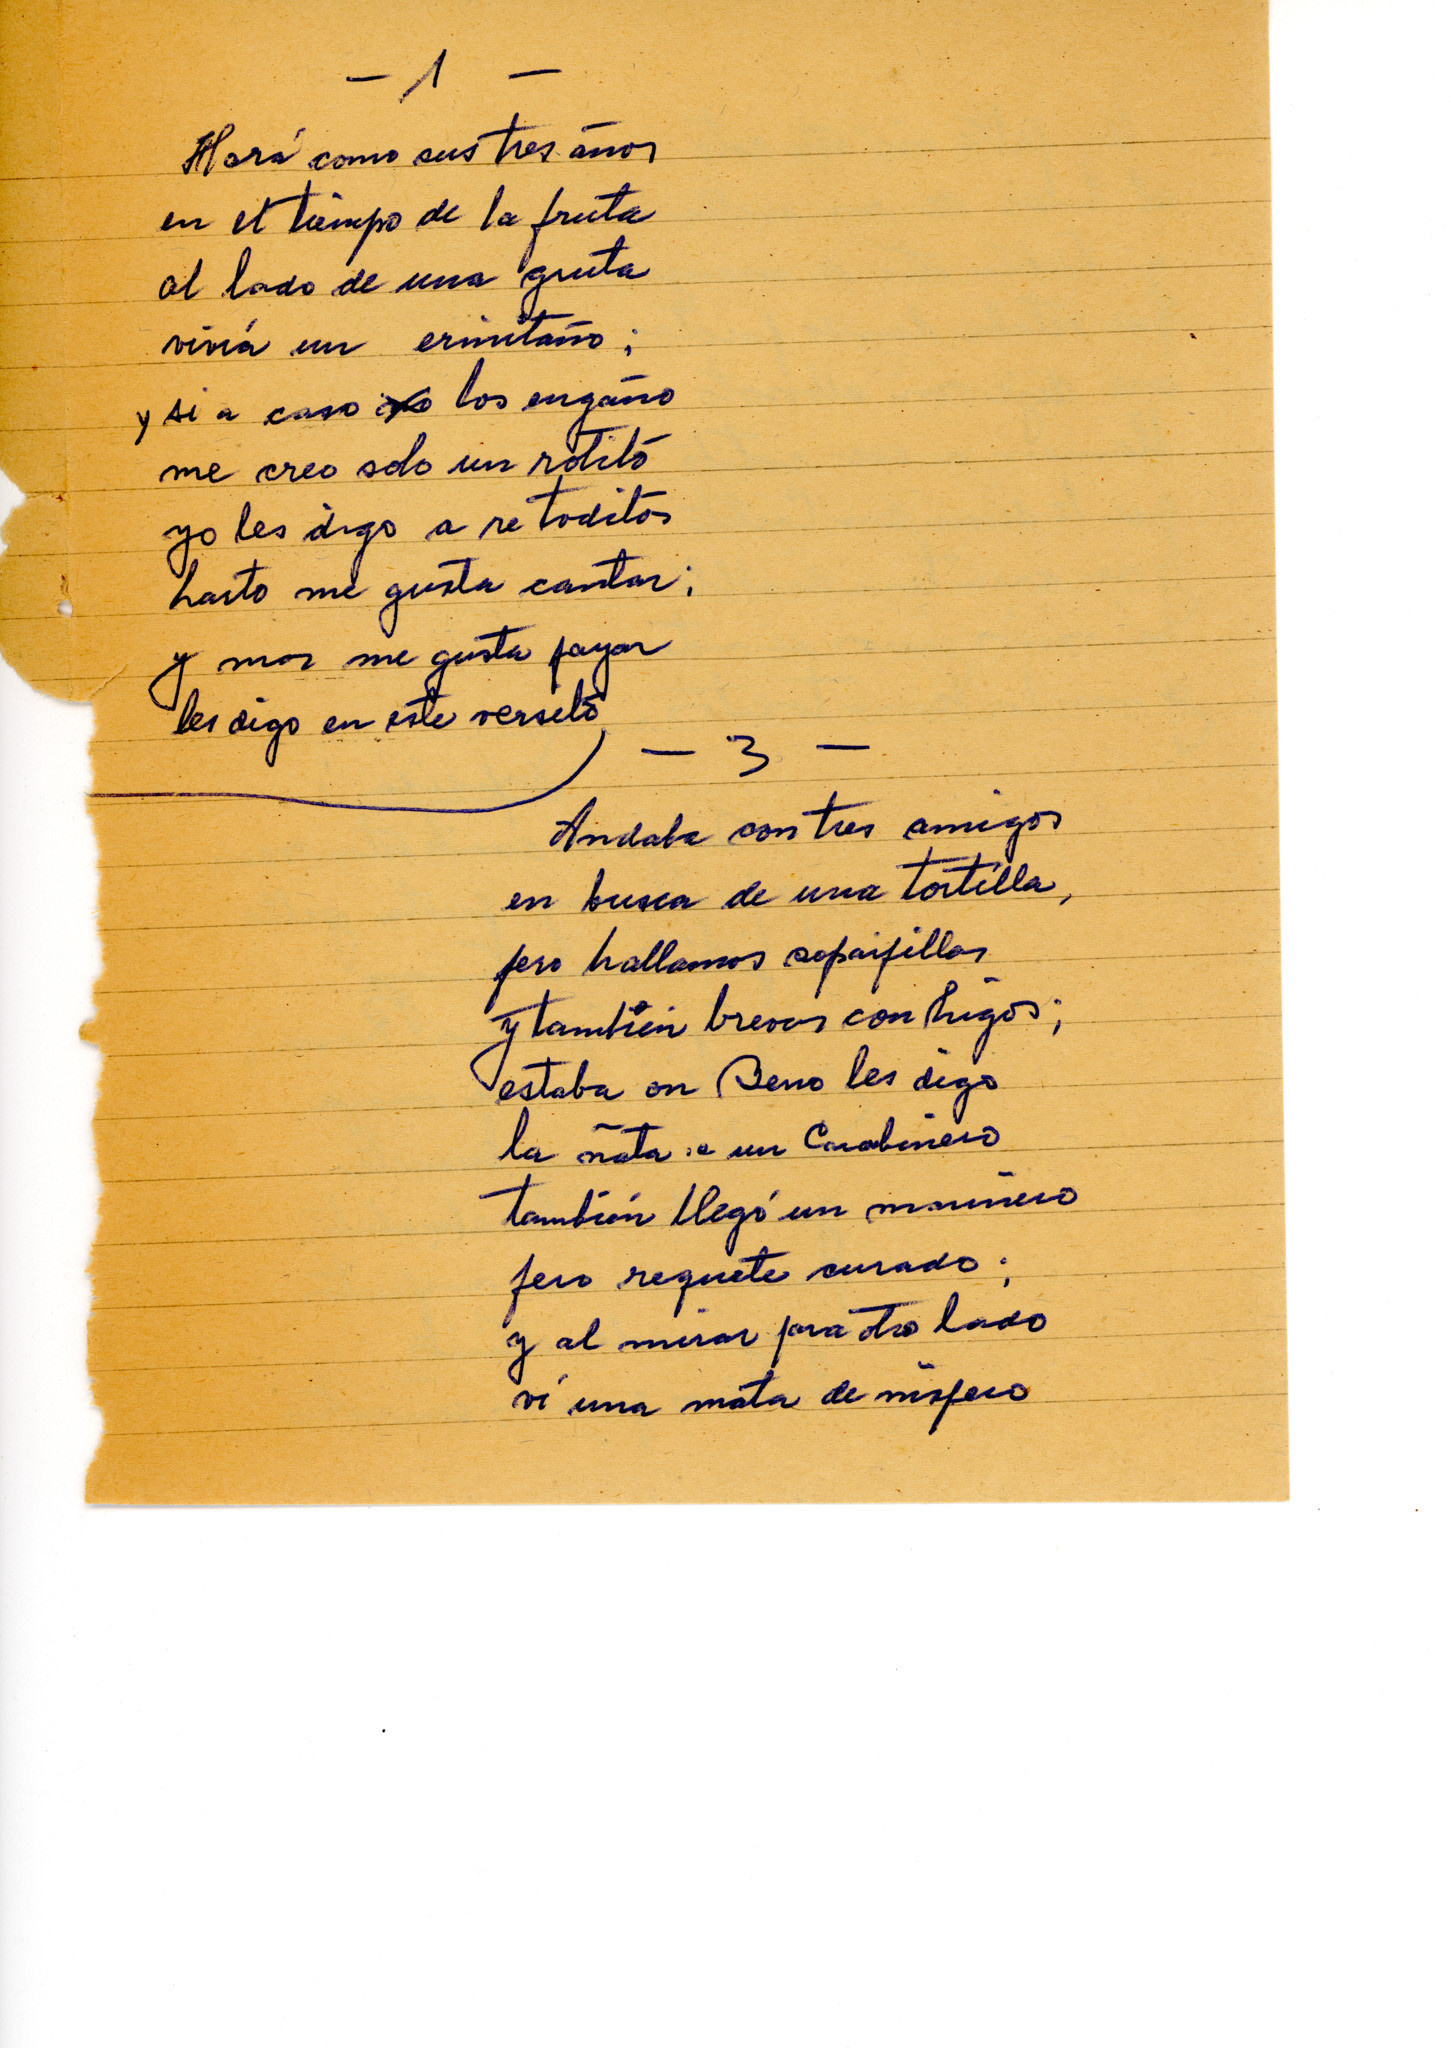 - 1 -
Hará como sus tres años
en el tiempo de la fruta
al lado de una gruta
vivía un ermitaño;
y si a caso los engaño
me creo solo un rotito
yo les digo a re toditos
harto me gusta cantar;
y mas me gusta payar
les digo en este versito
- 3 -
Andaba con tres amigos
en busca de una tortilla,
pero hallamos sopaipillas
y también brevas con higos;
estaba on Beno les digo
la ñata e un Carabinero
también llegó un marinero
pero requete curado;
y al mirar para otro lado
ví una mata de níspero